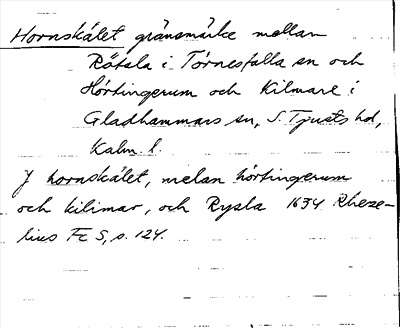 Hornskålet gränsmärke mellan
Råtsla i Törnesfalla sn och
Hörtingerum och Kilmare i
Gladhammars sn, S. Tjusts hd,
Kalm. l.
J hornskålet, melan hörtingerum
och kilimar, och Rysla 1634 Rheze-
lius Fc 5, s. 124.